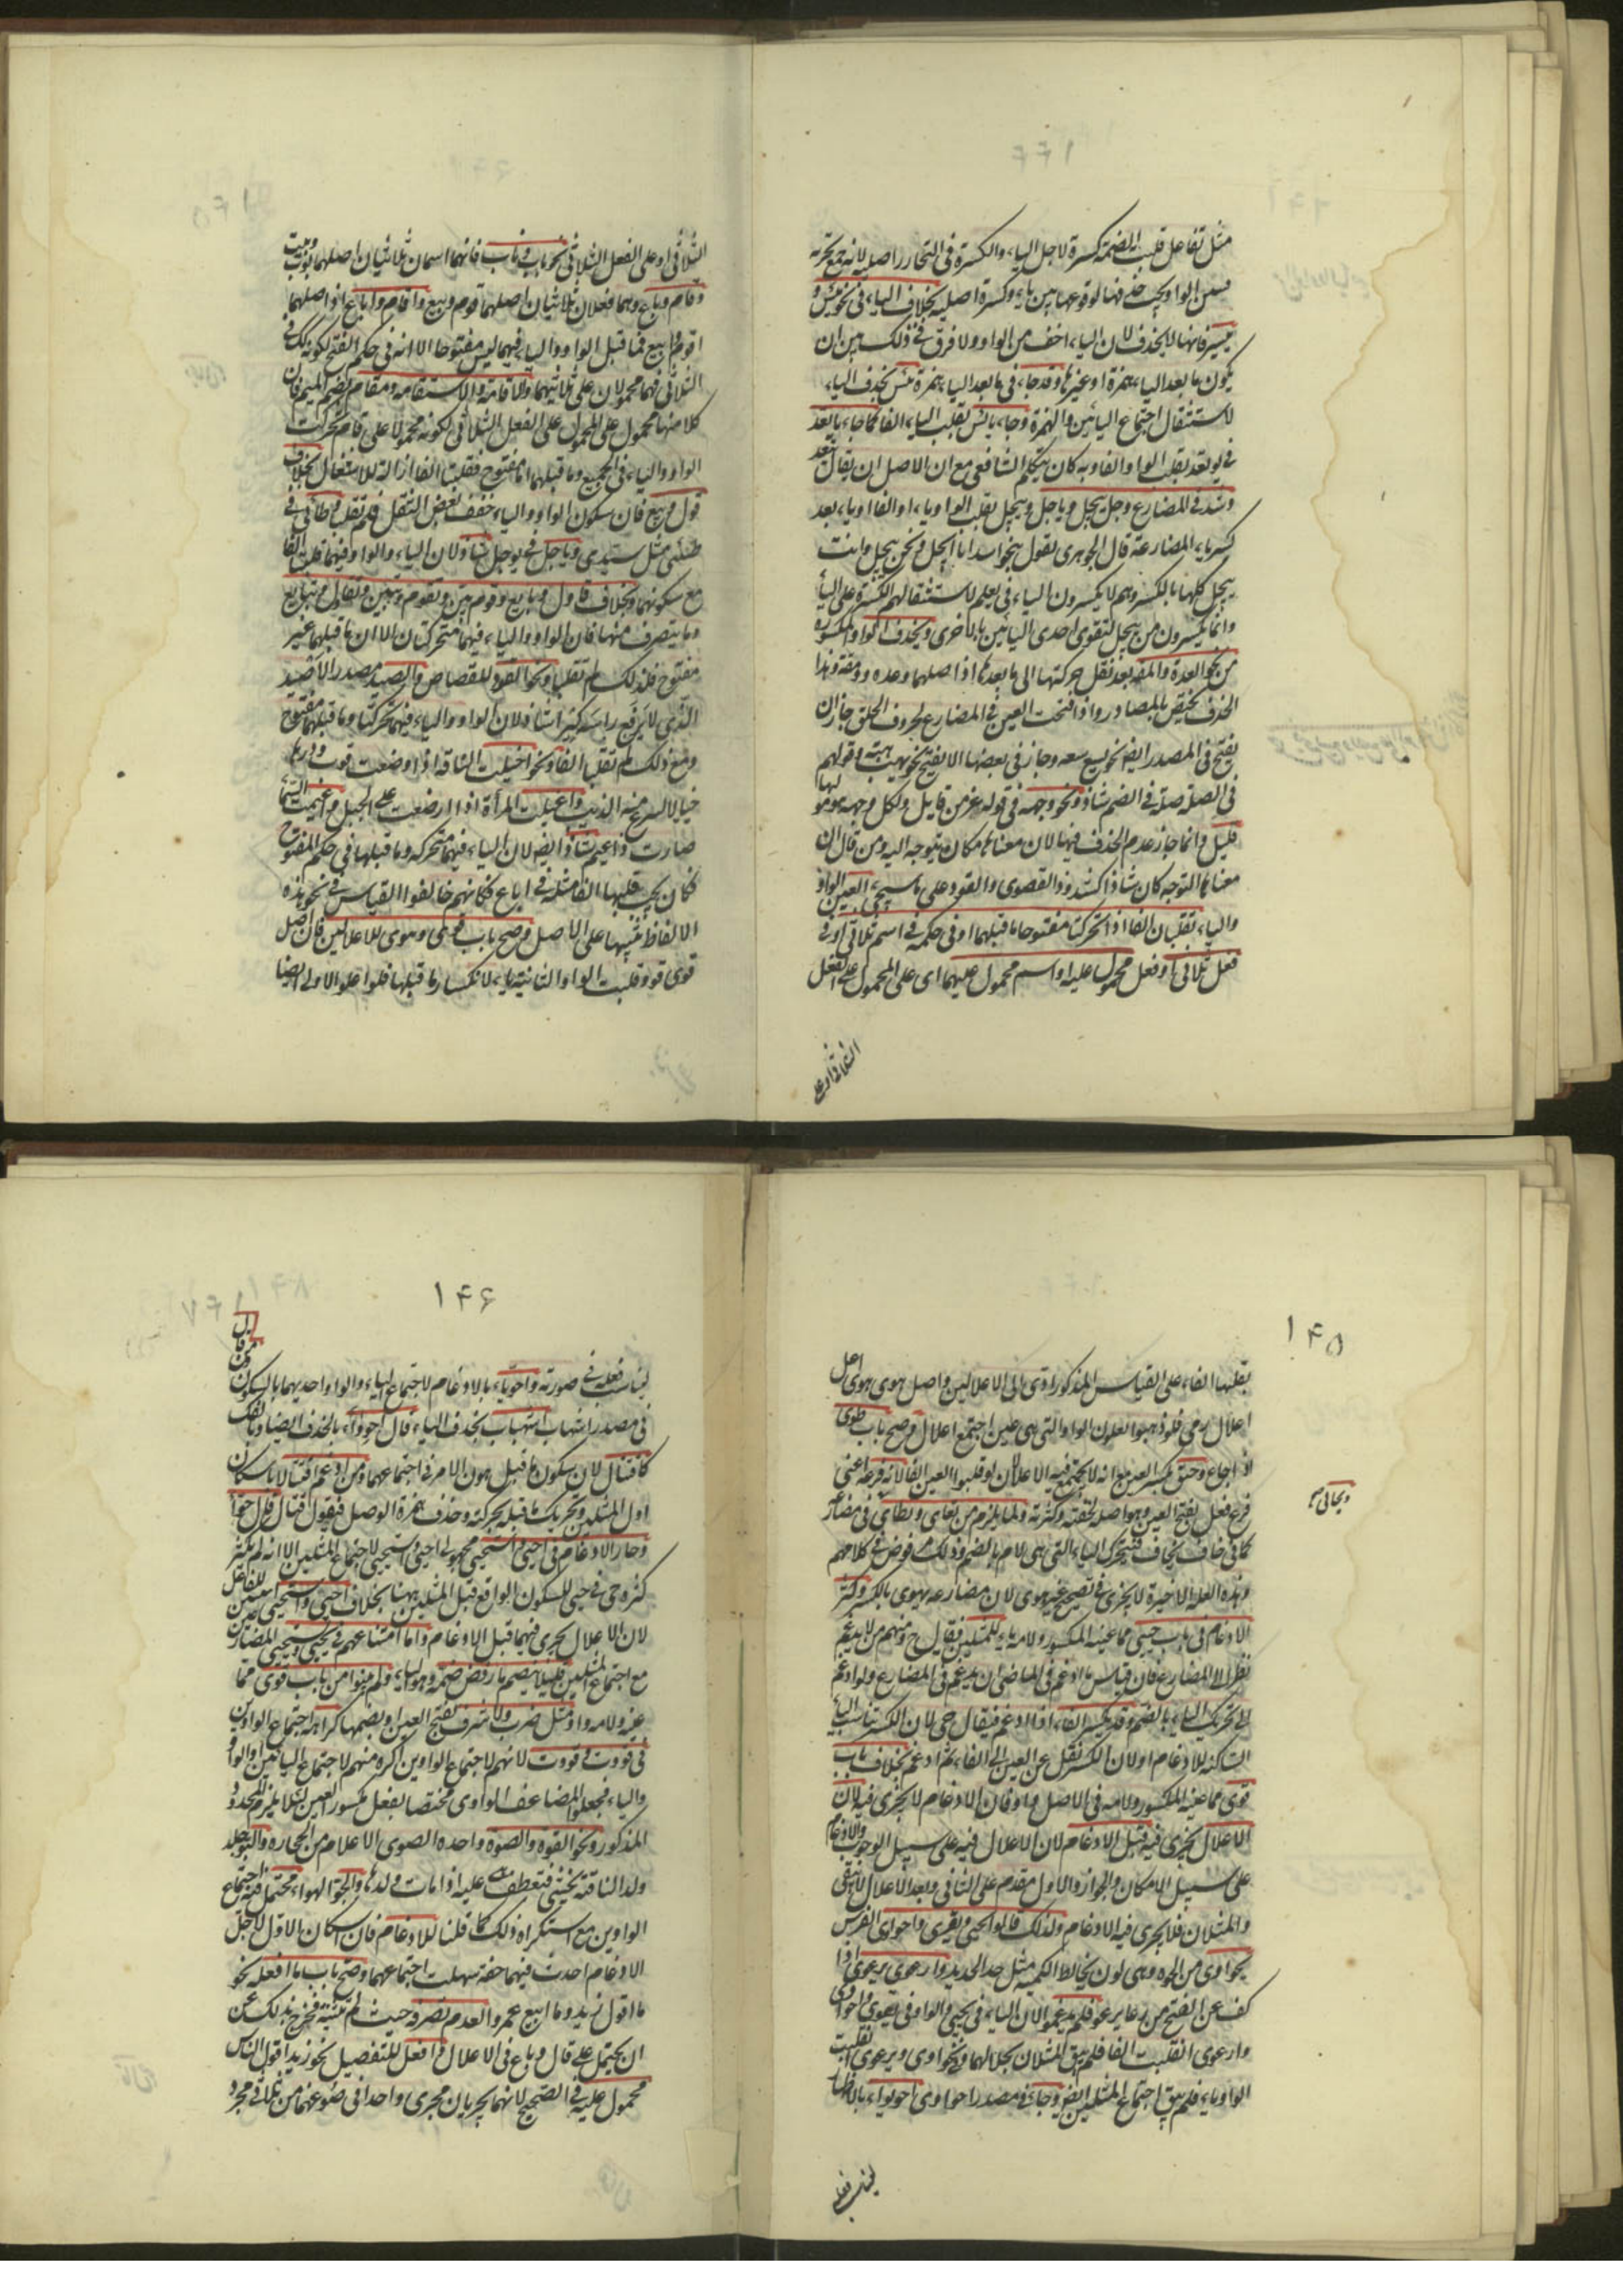 مثل تفاعل قلبت الضمة كسرة لاجل الياء والكسرة في التجاري اصلية لانه جمع تجربة
فسقن الواو يجب حذفها لوقوعها بين ياء وكسرة اصلية بخلاف الياء في نحو ييئس و
ييسر فانها لا يحذف لان الياء اخف من الواو ولا فرق في ذلك بين ان
يكون ما بعد الياء همزة او غيرها وقد جاء في ما بعد الياء همزة يئس بحذف الياء
لاستثقال اجتماع اليائين والهمزة وجاء يائس بقلب الياء الفا كما جاء ياتعد
في يوتعد بقلب الواو الفا وبه كان يتكلم الشافعي مع ان الاصل ان يقال يتعد
وشذ في المضارع وجل ييجل وياجل وييجل بقلب الواو ياء او الفا او ياء بعد
كسر ياء المضارعة قال الجوهري تقول بنو اسد انا ايجل ونحن نيجل وانت
تيجل كلها بالكسر وهم لا يكسرون الياء في يعلم لاستثقالهم الكسرة على الياء
وانما يكسرون من ييجل لتقوى احدى اليائين بالاخرى ويحذف الواو المكسورة
من نحو العدة والمقة بعد نقل حركتها الى ما بعدها اذ اصلهما وعدة وومقة وهذا
الحذف يختص بالمصادر واذا فتحت العين في المضارع لحروف الحلق جاز ان
يفتح في المصدر ايضا نحو يسع سعة وجاز في بعضها الا يفتح نحو يهب هبة وقولهم
في الصلة صلة في الضم شاذ ونحو وجهة في قوله عز من قايل ولكل وجهة هو موليها
قليل وانما جاز عدم الحذف فيها لان معناها مكان يتوجه اليه ومن قال ان
معناها التوجه كان شاذا كشذوذ القصوى والقود على ما سيجيء العين الواو
والياء تقلبان الفا اذا تحركتا مفتوحا ما قبلهما او في حكمه في اسم ثلاثي او في
فعل ثلاثي او فعل محمول عليه او اسم محمول عليهما اى على المحمول على الفعل
الثلاثي او على
الثلاثي او على الفعل الثلاثي نحو باب وناب فانهما اسمان ثلاثيان اصلهما بوب ونيب
وقام وباع وهما فعلان ثلاثيان اصلهما قوم وبيع واقام واباع اذ اصلهما
اقوم وابيع فما قبل الواو والياء فيهما ليس مفتوحا الا انه في حكم الفتح لكونه كذلك في
الثلاثي فهما محمولان على ثلاثيهما والاقامة والاستقامة ومقام بضم الميم فان
كلا منها محمول على المحمول على الفعل الثلاثي لكونه محمولا على قام تحركت
الواو والياء في الجميع وما قبلهما اما مفتوح فقلبت الفا ازالة للاستثقال بخلاف
قول وبيع فان سكون الواو والياء خفف بعض الثقل فلم تقلب وطائي في
طيئي مثل سيدي وياجل في يوجل شاذ لان الياء والواو فيهما قلبتا الفا
مع سكونهما وبخلاف قاول وبايع وقوم وبين وتقوم وتبين وتقاول وتبايع
وما يتصرف منها فان الواو والياء فيهما متحركتان الا ان ما قبلهما غير
مفتوح فلذلك لم تقلبا ونحو القود للقصاص والصيد مصدر الاصيد
الذي لا يرفع راسه كبرا شاذ لان الواو والياء فيهما تحركتا وما قبلهما مفتوح
ومع ذلك لم تقلبا الفا ونحو اخيلت الناقة اذا وضعت قرب ولدها
خيالا ليسرح منه الذئب واغيلت المراة اذا ارضعت على الحبل واغيمت السماء
صارت ذا غيم شاذ ايضا لان الياء فيها متحركة وما قبلها في حكم المفتوح
فكان يجب قلبها الفا مثله في اباع فكانهم خالفوا القياس في نحو هذه
الالفاظ تنبيها على الاصل وصح باب قوى وهوى للاعلالين فان اصل
قوى قوو قلبت الواو الثانية ياء لانكسار ما قبلها فلو اعلوا الاولى ايضا
۱۴۵
بقلبها الفا على القياس المذكور ادى الى الاعلالين واصل هوى هوى اعل
اعلال رمى فلو ذهبوا يعلون الواو التي هي عين اجتمع اعلالان وصح باب طوى
اذا جاع وحيي بكسر العين مع انه لا يجتمع فيه الاعلالان لو قلبوا العين الفا لانه فرعه اعني
فرع فعل بفتح العين وهو اصل لخفته وكثرته ولما يلزم من يقاي ويطاي في مضارعه
ويحاي صح
كما في خاف يخاف فتحرك الياء التي هي لام بالضم وذلك مرفوض في كلامهم
وهذه العلة الاخيرة لا يجرى في تصحيح عين هوى لان مضارعه يهوى بالكسر وكثر
الادغام في باب حيي مما عينه المكسور ولامه ياء للمثلين فيقال حي ومنهم من لا يدغم
نظرا الى المضارع فان قياس ما ادغم في الماضي ان يدغم في المضارع ولو ادغم
لزم تحريك الياء بالضم وقد يكسر الفاء اذا ادغم فيقال حي لان الكسر يناسب الياء
الساكنة للادغام او لان الكسر نقل عن العين الى الفاء ثم ادغم بخلاف باب
قوى مما عينه المكسور ولامه في الاصل واو فان الادغام لا يجرى فيه لان
الاعلال يجرى فيه قبل الادغام لان الاعلال فيه على سبيل الوجوب والادغام
على سبيل الامكان والجواز والاول مقدم على الثاني وبعد الاعلال لا يبقى
المثلان فلا يجرى فيه الادغام ولذلك قالوا يحيي ويقوى واحواوى الفرس
يحواوى من الحوة وهي لون يخالط الكمتة مثل صدا الحديد وارعوى يرعوى اذا
كف عن القبح من رعا يرعو فلم يدغموا لان الياء في يحيي والواو في يقوى واحواوى
وارعوى انقلبت الفا فلم يبق المثلان بحالهما ونحو يحواوى ويرعوى انقلبت
الواو ياء فلم يبق اجتماع المثلين ايضا وجاء في مصدر احواوى احويواء بالاظهار
ليناسب فعله
۱۴۶
ليناسب فعله في صورته واحوياء بالادغام لاجتماع الياء والواو احديهما بالسكون ومن قال
في مصدر اشهاب اشهباب بحذف الياء قال احوواء بالحذف ايضا وبالفك
كاقتتال لان سكون ما قبل يهون الامر في اجتماعهما ومن ادغم اقتتالا باسكان
اول المثلين وتحريك ما قبله بحركته وحذف همزة الوصل فيقول قتال قال حواء
وجاز الادغام في احيي واستحيي مجهولي احيى واستحيى لاجتماع المثلين الا انه لم يكثر
كثرة حي في حيي للسكون الواقع قبل المثلين ههنا بخلاف احيى واستحيى مبنيين للفاعل
لان الاعلال يجرى فيهما قبل الادغام واما امتناعهم في يحيي ويستحيي المضارعين
مع اجتماع المثلين فلئلا ينضم ما رفض ضمه وهو الياء ولم يبنوا من باب قوى مما
عينه ولامه واو مثل ضرب ولا شرف بفتح العين او بضمها كراهة اجتماع الواوين
في قووت وقووت لانهم لاجتماع الواوين اكره منهم لاجتماع اليائين او الواو
والياء فجعلوا المضاعف الواوى مختصا بفعل مكسور العين لئلا يلزم المحذور
المذكور ونحو القوة والصوة واحدة الصوى الاعلام من الحجارة والبو جلد
ولد الناقة يحشى فتعطف عليه اذا مات ولدها والجو الهواء محتمل فيه اجتماع
الواوين مع استكراه ذلك كما قلنا للادغام فان اسكان الاول لاجل
الادغام احدث فيهما خفة سهلت اجتماعهما وصح باب ما افعله نحو
ما اقول زيدا وما ابيع عمروا لعدم تصرفه حيث لم تثنيه فخرج بذلك عن
ان يحمل على قال وباع في الاعلال وافعل للتفضيل نحو زيد اقول الناس
محمول عليه في التصحيح لانهما يجريان مجرى واحدا في صوغهما من ثلاثي مجرد